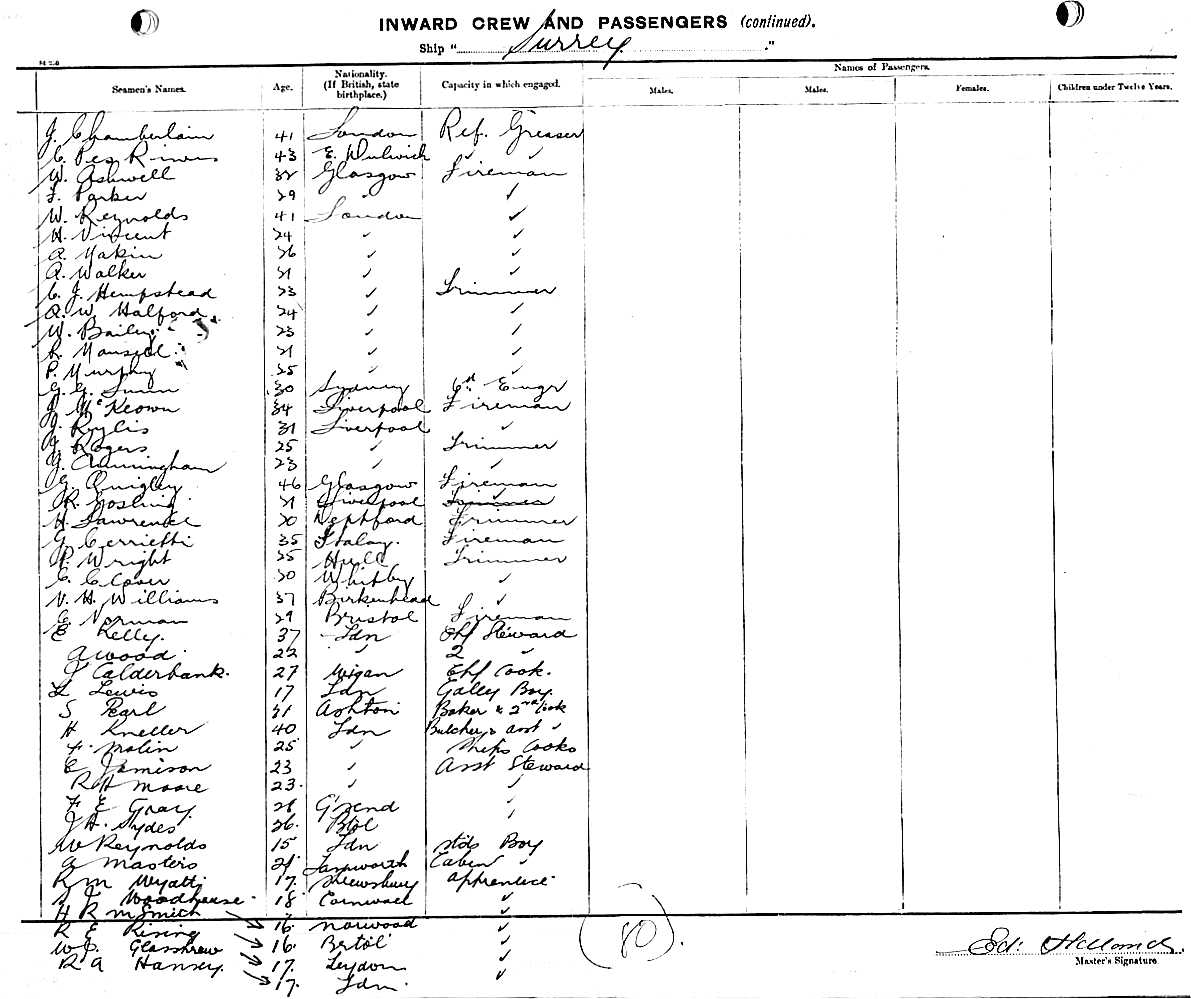 INWARD CREW AND PASSENGERS (continued).
Ship "Surrey."
Seamen's Names. Age. Nationality. (If British, state birthplace.) Capacity in which engaged. Names of Passengers.
Males. Males. Females. Children under Twelve Years.
J. Chamberlain 41 London Ref. Greaser
43 E. Wulwich ✓ ✓
W. Ashwell 32 Glasgow Fireman
F. Parker 29 ✓ ✓
W. Reynolds 41 London ✓
H. Vincent 24 ✓ ✓
A. Makin 26 ✓ ✓
A. Walker 21 ✓ ✓
C. J. Hempstead 23 ✓ Trimmer
A. W. Halford 24 ✓ ✓
W. Bailey 23 ✓ ✓
R. Mansell 21 ✓ ✓
P. Murphy 25 ✓ ✓
30 Sydney 6th Engr
J. McKeown 34 Liverpool Fireman
J. 31 Liverpool ✓
J. Rogers 25 ✓ Trimmer
J. Cunningham 23 ✓ ✓
G. Quigley 46 Glasgow Fireman
R. Gosling 21 Liverpool Trimmer
H. Lawrence 20 Deptford Trimmer
G. Cerrietti 35 Italay. Fireman
P. Wright 25 Hull Trimmer
C. Clover 30 Whitby ✓
V. H. Williams 37 Birkenhead ✓
C. Norman 29 Bristol Fireman
E Kelly. 37 Ldn Chf Steward
A Wood. 22 ✓ 2 ✓
J Calderbank. 27 Wigan Chf Cook.
L Lewis 17 Ldn Galley Boy.
S Pearl 31 Ashton Baker & 2nd Cook
H Kneller 40 Ldn Butcher & asst ✓
F. Malin 25 ✓ Ships Cooks
E Jamison 23 ✓ Asst Steward
R H Moore 23. ✓ ✓
F E Gray. 28 G'send ✓
J H. Sydes 26. Btol ✓
W Reynolds 15 Ldn Stds Boy
A Masters 21 Tamworth Cabin ✓
R M Wyatt 17. Shrewsbury apprentice
Woodhouse. 18 Cornwall ✓
H R M Smith 16. Norwood ✓
R E Rising 16. Bristol ✓
W J. 17. Leydon ✓
R A Hansey. 17. Ldn. ✓
(80).
Master's Signature.